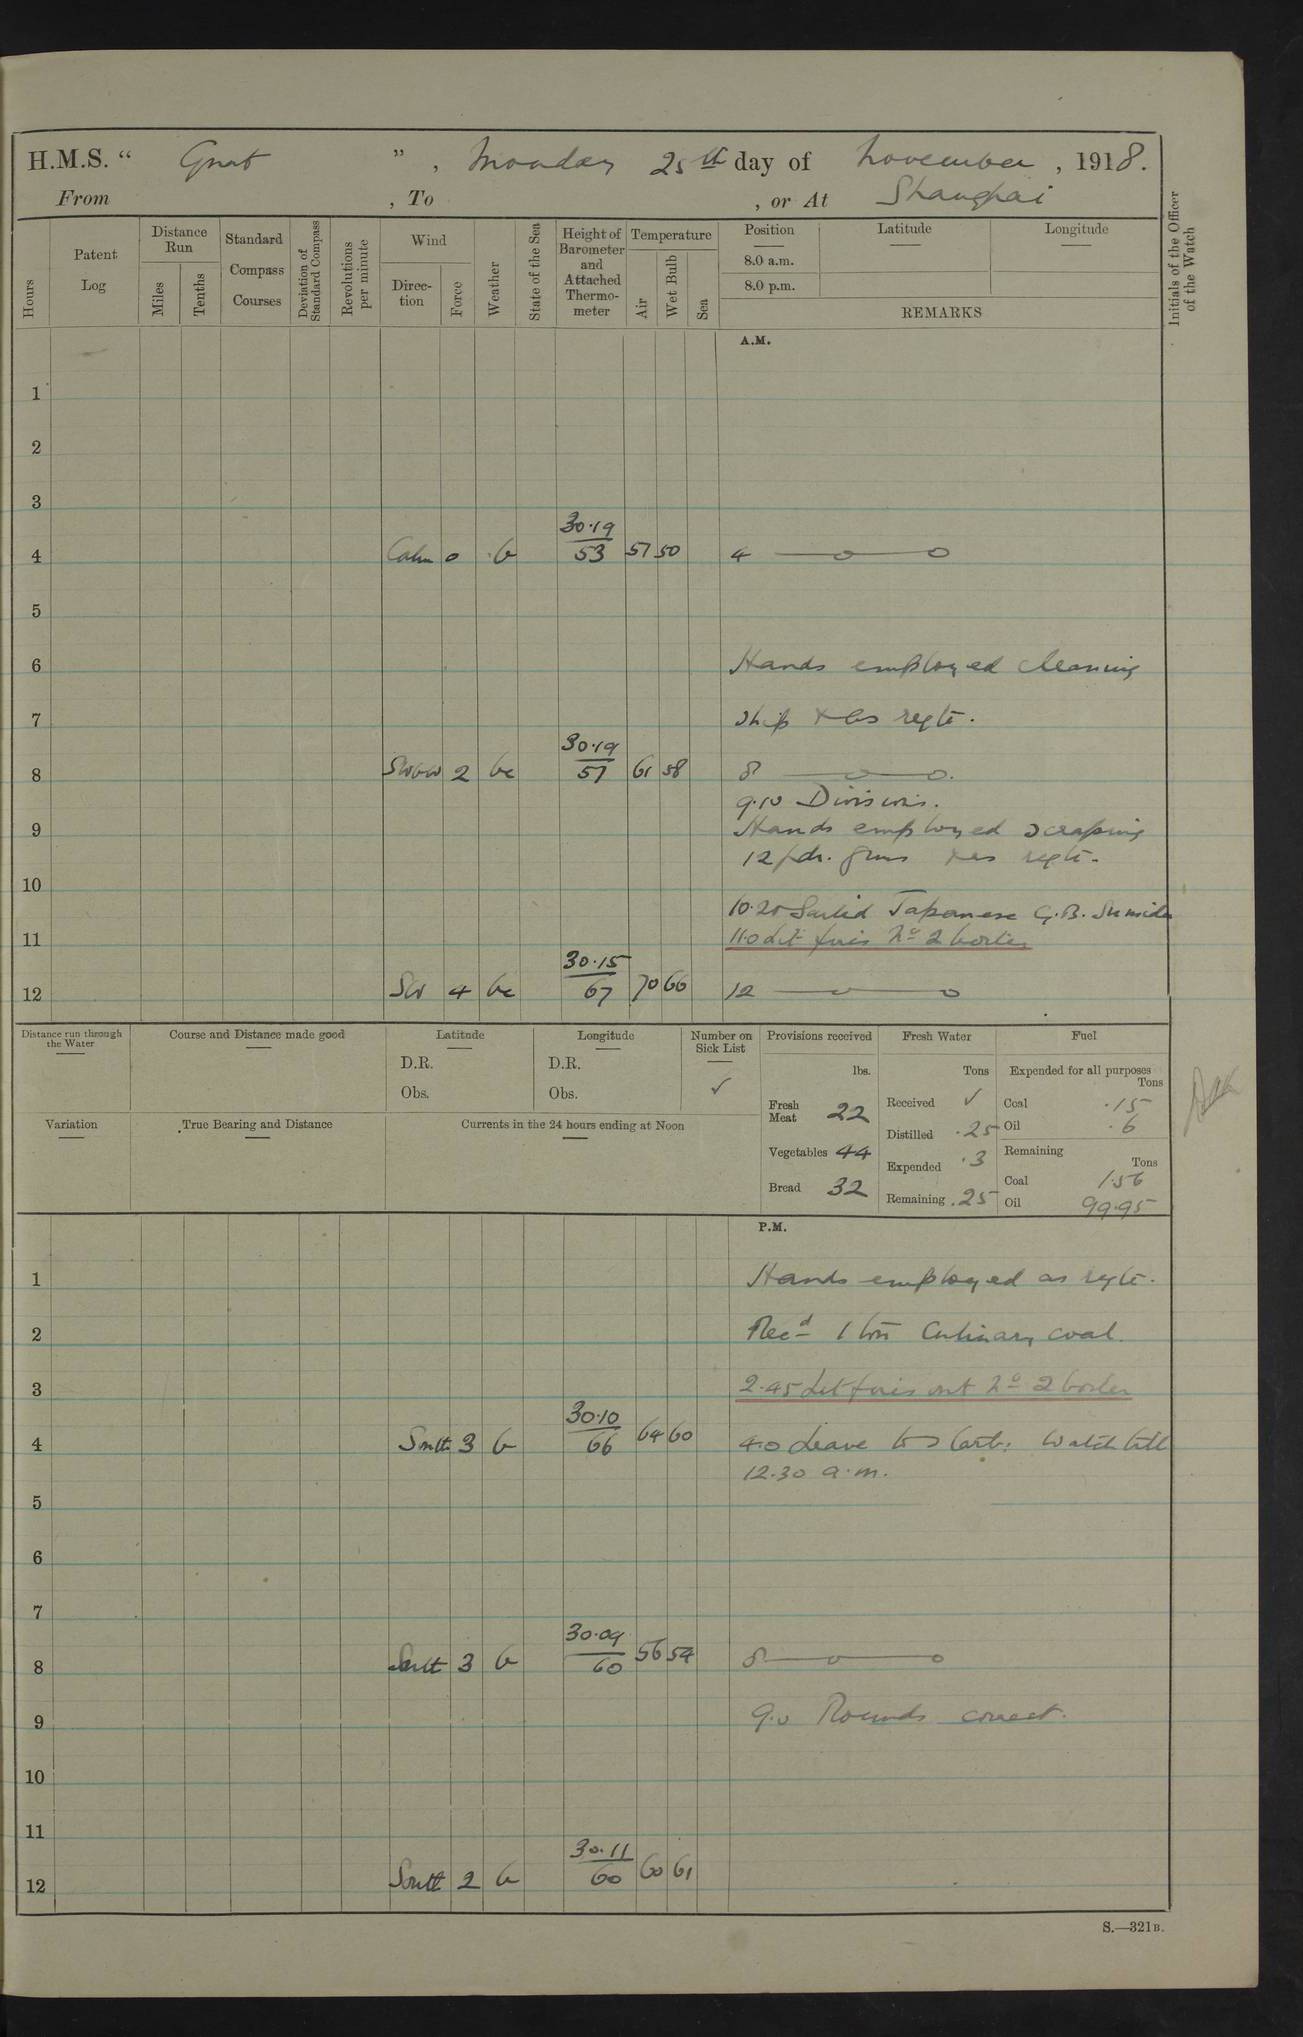 H.M.S. “ Gnat ” , Monday 25th day of November , 1918.
From , To , or At Shanghai
Hours
Patent Log
Distance Run
Miles
Tenths
Standard Compass Courses
Deviation of Standard Compass
Revolutions per minute
Wind
Direction
Force
Weather
State of the Sea
Height of Barometer and Attached Thermometer
Temperature
Air
Wet Bulb
Sea
Position
8.0 a.m.
8.0 p.m.
Latitude
Longitude
REMARKS
Initials of the Officer of the Watch
A.M.
1
2
3
30.19
4 Calm 0 b 53 51 50 4
5
6 Hands employed cleaning
7 ship & as reqte.
30.19
8 SWbW 2 bc 57 61 58 8
9.10 Divisions.
9 Hands employed scraping
12 pdr. guns & as reqte.
10
10.20 Sailed Japanese G.B. Sumida
11 11.0 Lit fires No 2 boiler
30.15
12 SW 4 bc 67 70 66 12
Distance run through the Water
Course and Distance made good
Latitude
D.R.
Obs.
Longitude
D.R.
Obs.
Number on Sick List
✓
Variation
True Bearing and Distance
Currents in the 24 hours ending at Noon
Provisions received
lbs.
Fresh Meat 22
Vegetables 44
Bread 32
Fresh Water
Tons
Received ✓
Distilled .25
Expended .3
Remaining .25
Fuel
Expended for all purposes
Tons
Coal .15
Oil .6
Remaining
Tons
Coal 1.56
Oil 99.95
P.M.
1 Hands employed as reqte.
2 Recd 1 ton Culinary coal.
3 2.45 Let fires out No 2 boiler
30.10
4 South 3 b 66 64 60 4.0 Leave to Starb: Watch till
12.30 a.m.
5
6
7
30.09
8 South 3 b 60 56 54 8
9 9.0 Rounds correct.
10
11
30.11
12 South 2 b 60 60 61
S.—321B.